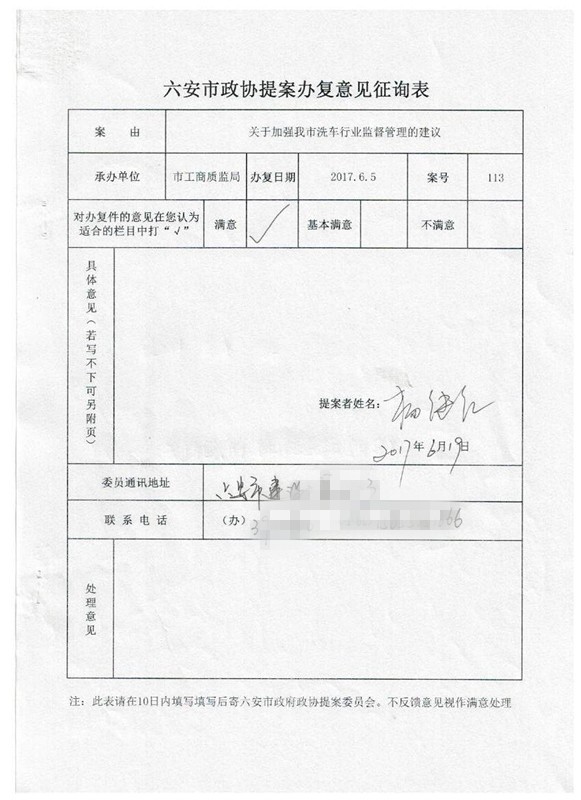 六安市政协提案办复意见征询表
案 由 关于加强我市洗车行业监督管理的建议
承办单位 市工商质监局 办复日期 2017.6.5 案号 113
对办复件的意见在您认为
适合的栏目中打“√” 满意 √ 基本满意 不满意
具体意见（若写不下可另附页）
提案者姓名:
2017年6月19日
委员通讯地址 六安市
联系电话 （办）3 166
处理意见
注：此表请在10日内填写填写后寄六安市政府政协提案委员会。不反馈意见视作满意处理